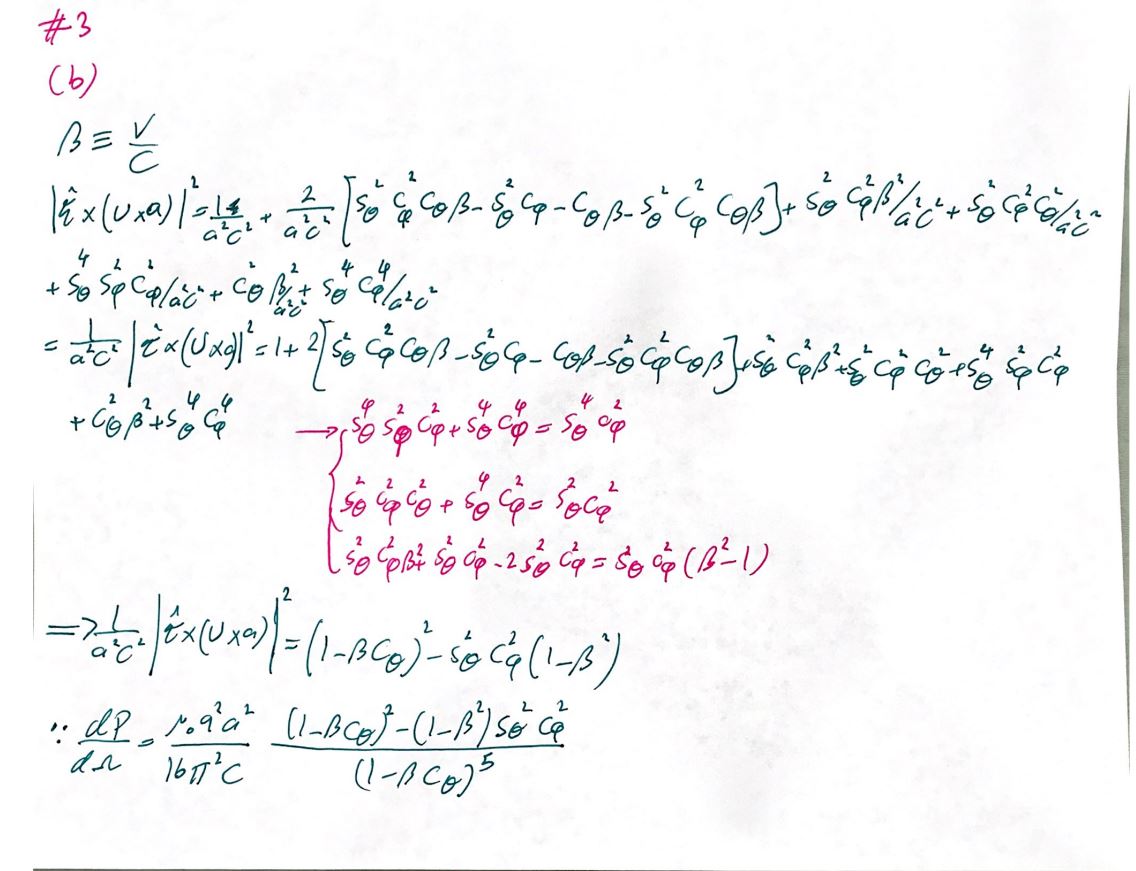 #3
(b)
β ≡ V/C
|r̂×(U×a)|² = 1/a²c² + 2/a²c² [Sθ² Cφ² Cθ β - Sθ² Cφ - Cθ β - Sθ² Cφ² Cθ β] + Sθ² Cφ² β²/a²c² + Sθ² Cφ² Cθ²/a²c²
+ Sθ⁴ Sφ² Cφ²/a²c² + Cθ² β²/a²c² + Sθ⁴ Cφ⁴/a²c²
= 1/a²c² |r̂×(U×a)|² = 1 + 2[Sθ² Cφ² Cθ β - Sθ² Cφ - Cθ β - Sθ² Cφ² Cθ β] + Sθ² Cφ² β² + Sθ² Cφ² Cθ² + Sθ⁴ Sφ² Cφ²
+ Cθ² β² + Sθ⁴ Cφ⁴
→ { Sθ⁴ Sφ² Cφ² + Sθ⁴ Cφ⁴ = Sθ⁴ Cφ²
Sθ² Cφ² Cθ² + Sθ⁴ Cφ² = Sθ² Cφ²
Sθ² Cφ² β² + Sθ² Cφ² - 2 Sθ² Cφ² = Sθ² Cφ² (β² - 1)
=> 1/a²c² |r̂×(U×a)|² = (1 - β Cθ)² - Sθ² Cφ² (1 - β²)
∵ dP/dΩ = μ₀ q² a²/16π² C (1 - β Cθ)² - (1 - β²) Sθ² Cφ²/(1 - β Cθ)⁵